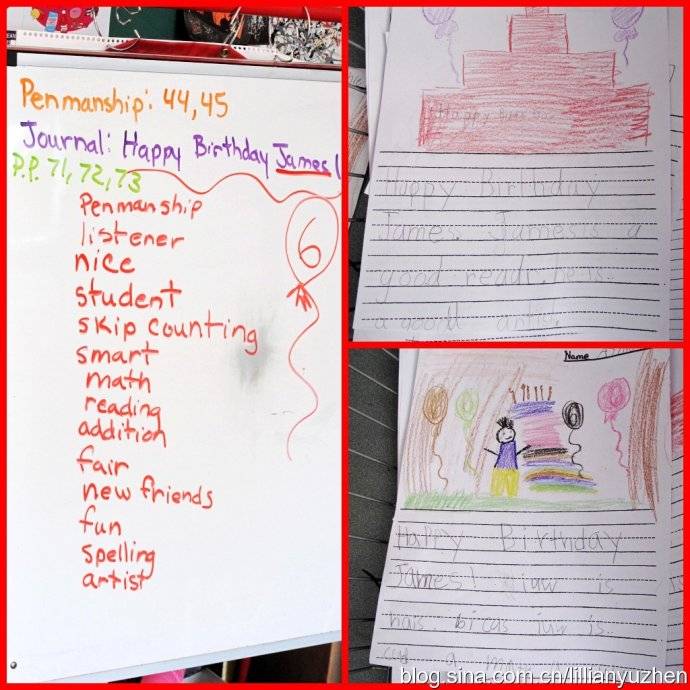 Penmanship: 44,45
Journal: Happy Birthday James!
P.P. 71, 72, 73
Penmanship
listener
nice
student
skip counting
smart
math
reading
addition
fair
new friends
fun
spelling
artist
6
Happy Birthday
James. James is a
good readr. he is
a good artist
Name
Happy Birthday
James! iuw is
nais. bicas iuw is
a
blog.sina.com.cn/lillianyuzhen